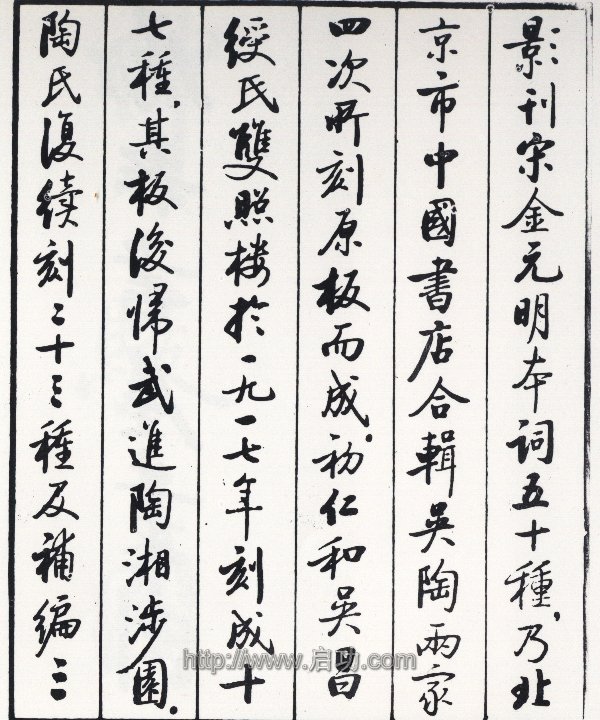 影刊宋金元明本词五十種,乃北
京市中國書店合輯吳陶兩家
四次所刻原板而成.初仁和吳昌
綬氏雙照楼於一九一七年刻成十
七種.其板後帰武進陶湘涉園.
陶氏復续刻二十三種及補编三
http://www.启功.com